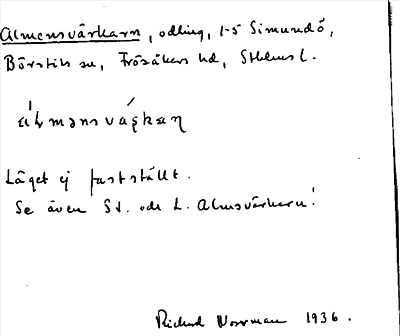 Almensvärkarn, odling, 1-5 Simundö,
Börstils sn, Frösåkers hd, Sthlms l.
álmansváṛkaṇ
Läget ej fastställt.
Se även St. och L. Almsvärkarn!
Rickard Norrman 1936.